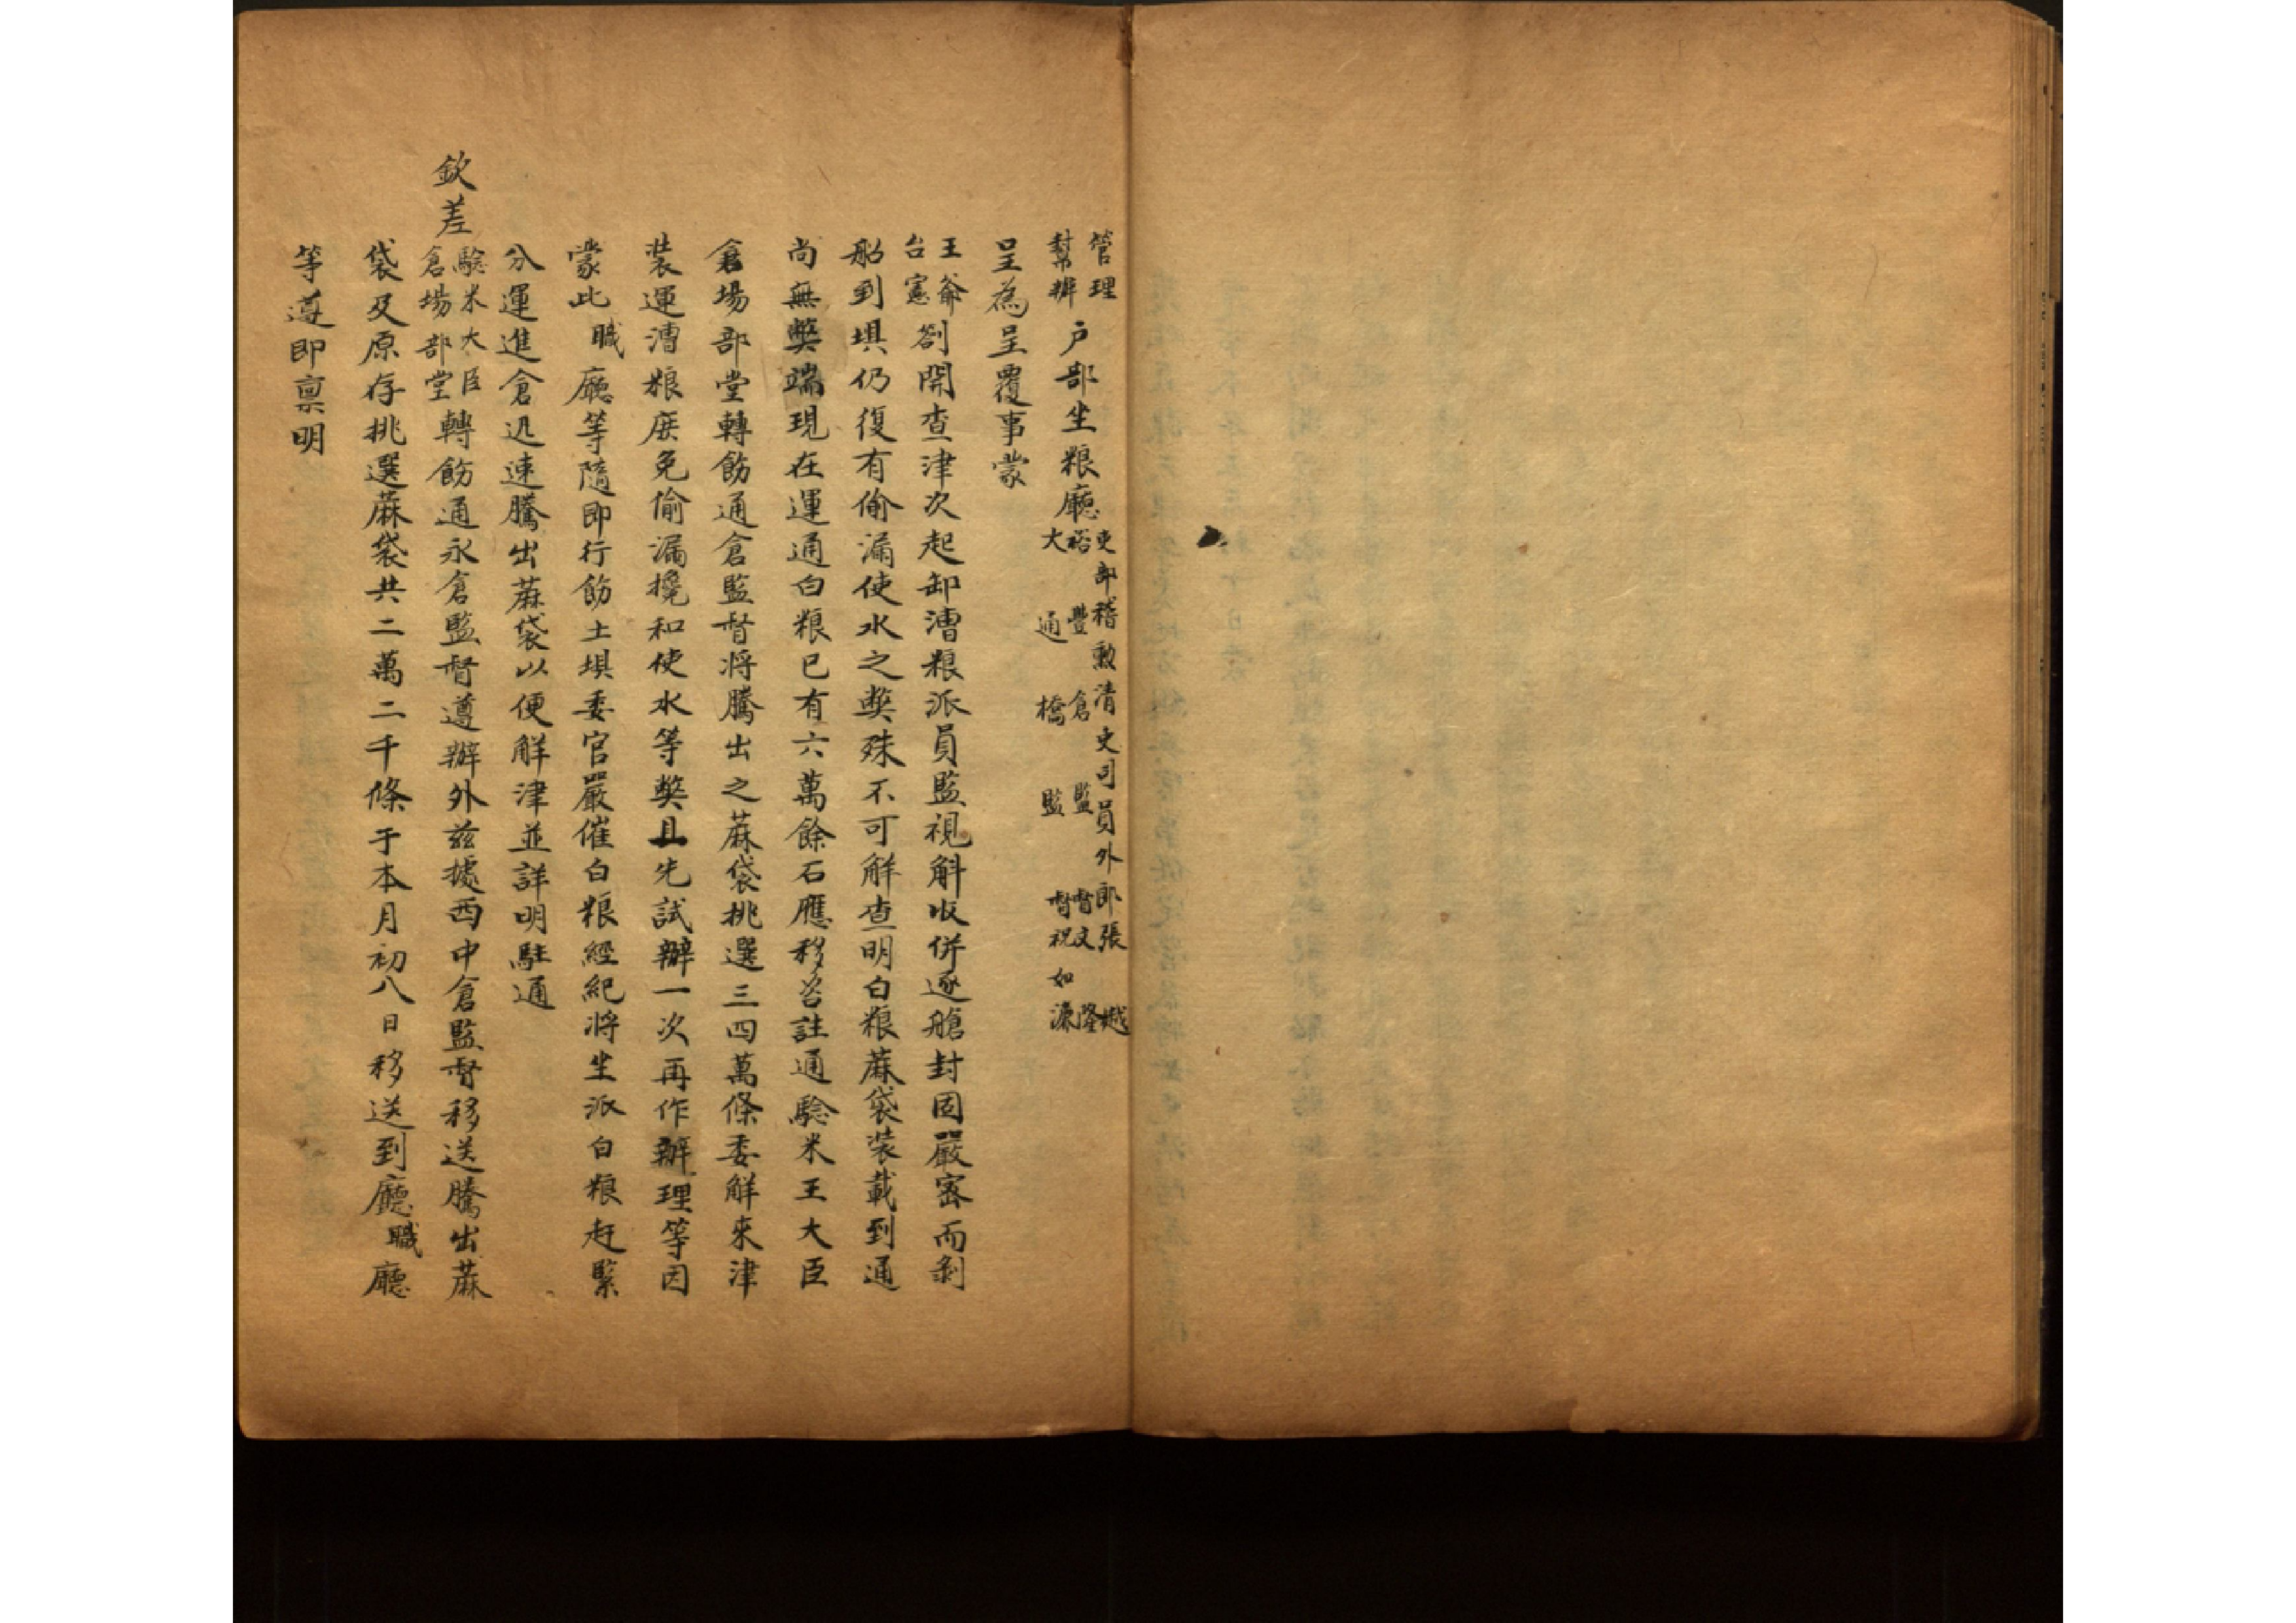 管理
幫辦
戶部坐粮廳
吏部稽勲清吏司員外郎張 樾
裕豐倉監督文隆
大通橋監督祝如濂
呈為呈覆事蒙
王爺
台憲
劄開查津次起卸漕粮派員監視斛收併逐艙封固嚴密而剝
船到垻仍復有偷漏使水之獘殊不可解查明白粮蔴袋装載到通
尚無獘端現在運通白粮已有六萬餘石應移咨註通驗米王大臣
倉場部堂轉飭通倉監督将騰出之蔴袋挑選三四萬條委解來津
装運漕粮庻免偷漏攙和使水等獘且先試辦一次再作辦理等因
蒙此職廳等隨即行飭土垻委官嚴催白粮經紀将坐派白粮赶緊
分運進倉迅速騰出蔴袋以便解津並詳明駐通
欽差
驗米大臣
倉場部堂
轉飭通永倉監督遵辦外兹據西中倉監督移送騰出蔴
袋及原存挑選蔴袋共二萬二千條于本月初八日移送到廳職廳
等遵即禀明